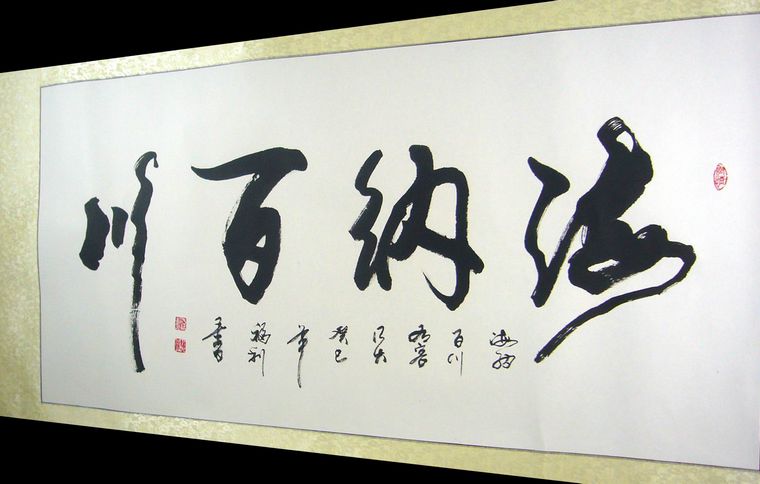 海纳百川
海纳
百川
有容
乃大
癸巳
年
福利
书